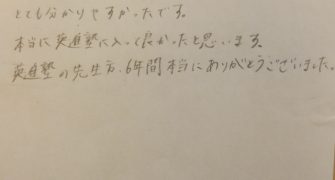 とても分かりやすかったです。
本当に英進塾に入って良かったと思います。
英進塾の先生方、6年間本当にありがとうございました。